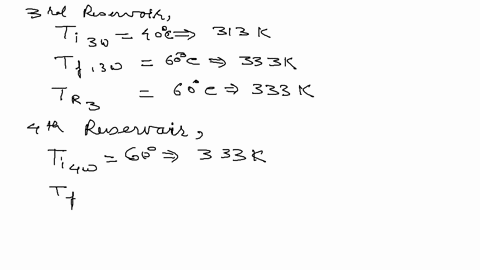 3rd Reservoir,
Ti 3w = 40°c ⇒ 313 K
Tf,3w = 60°c ⇒ 333K
TR3 = 60°c ⇒ 333 K
4th Reservair,
Ti4w = 60° ⇒ 333K
Tf